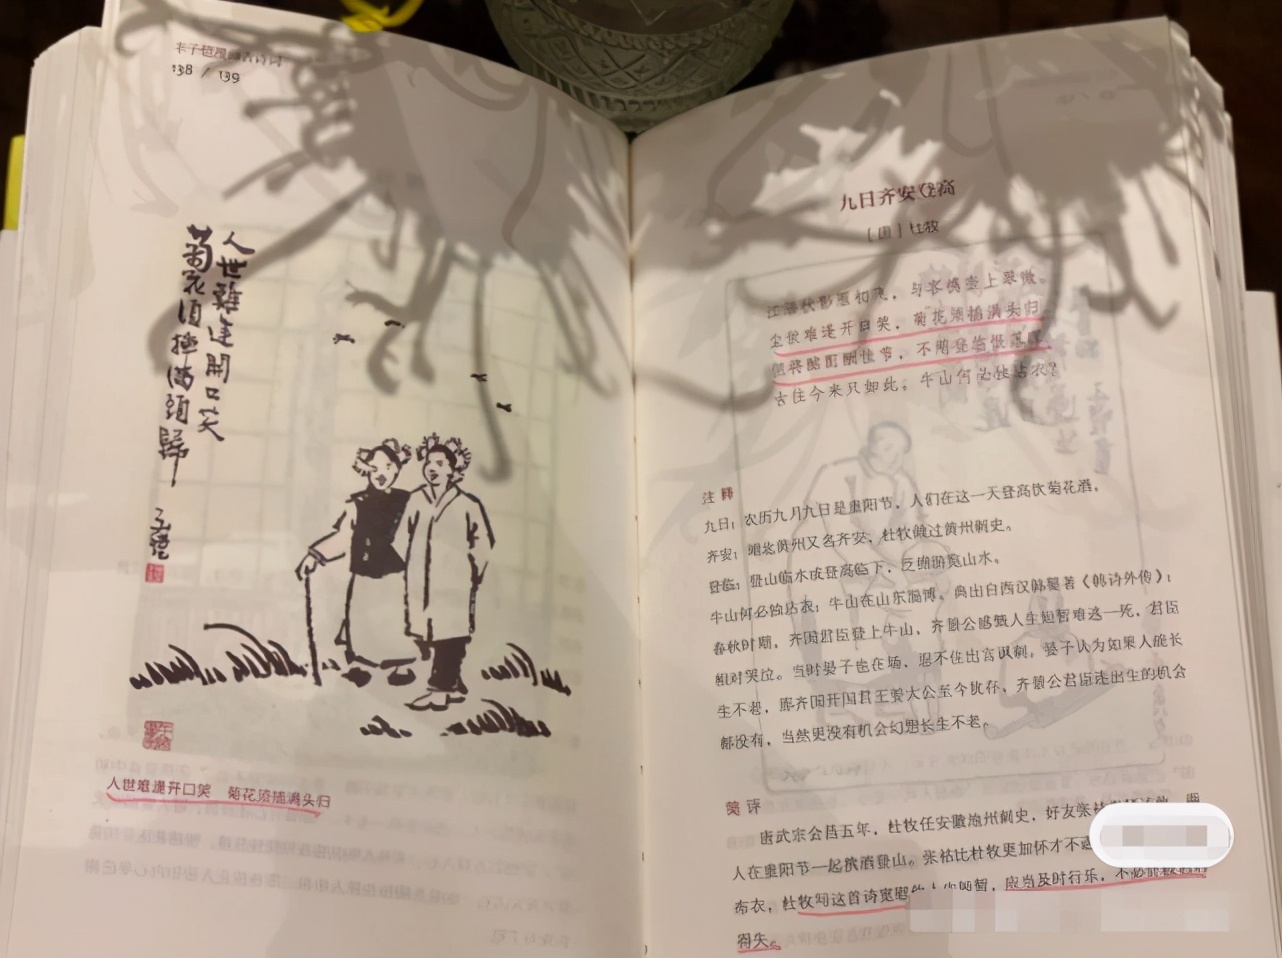 丰子恺漫画古诗词
138 / 139
人世难逢開口笑
菊花須插满頭歸
子愷
人世难逢开口笑 菊花须插满头归
九日齐安登高
[唐] 杜牧
江涵秋影雁初飞，与客携壶上翠微。
尘世难逢开口笑，菊花须插满头归。
但将酩酊酬佳节，不用登临恨落晖。
古往今来只如此，牛山何必独沾衣？
注释
九日：农历九月九日是重阳节，人们在这一天登高饮菊花酒。
齐安：湖北黄州又名齐安，杜牧做过黄州刺史。
登临：登山临水或登高临下，泛指游览山水。
牛山何必独沾衣：牛山在山东淄博。典出自西汉韩婴著《韩诗外传》：
春秋时期，齐国君臣登上牛山，齐景公感慨人生短暂难逃一死，君臣
相对哭泣。当时晏子也在场，忍不住出言讽刺。晏子认为如果人能长
生不老，那齐国开国君王姜太公至今犹存，齐景公君臣连出生的机会
都没有，当然更没有机会幻想长生不老。
赏评
唐武宗会昌五年，杜牧任安徽池州刺史，好友张祜
人在重阳节一起饮酒登山。张祜比杜牧更加怀才不
布衣，杜牧写这首诗宽慰 应当及时行乐，不必
得失。